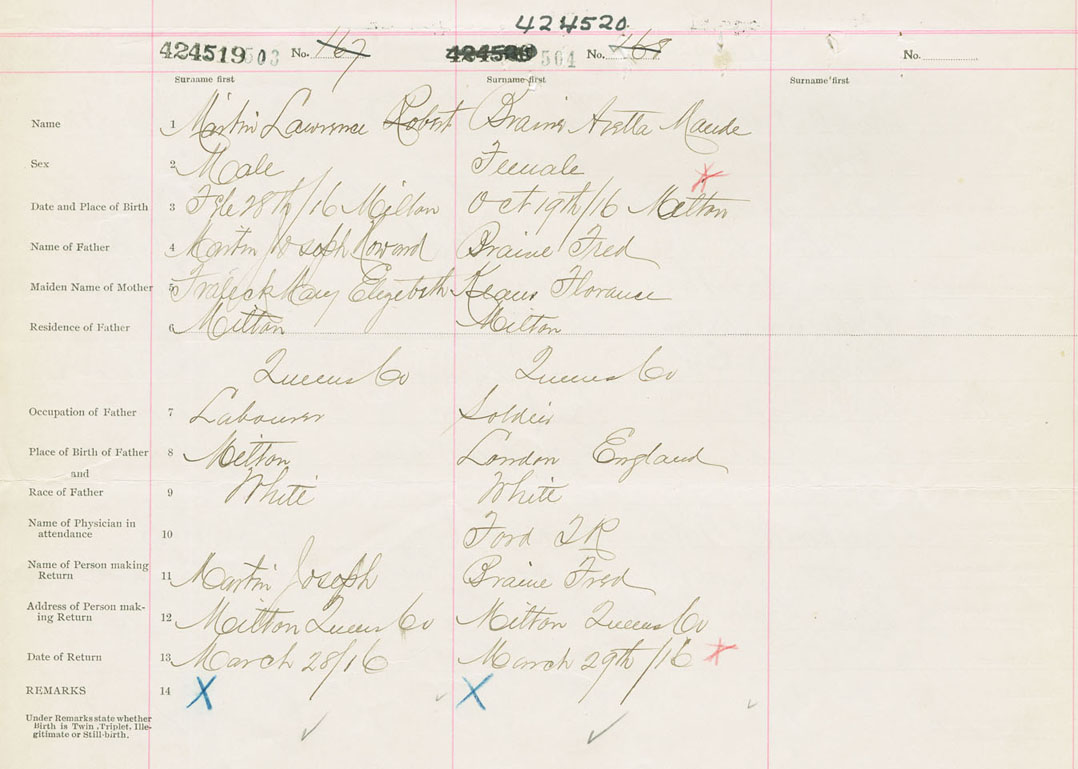 424520
424519 503 No. 167 504 No. 168 No.
Surname first Surname first Surname first
Name 1 Martin Lawrence Robert Braine Aretta Maude
Sex 2 Male Female
Date and Place of Birth 3 28th/16 Milton Oct 19th/16 Milton
Name of Father 4 Martin Joseph Howard Braine Fred
Maiden Name of Mother 5 Mary Elizebeth Florance
Residence of Father 6 Milton Milton
Queens Co Queens Co
Occupation of Father 7 Labourer Soldier
Place of Birth of Father 8 Milton London England
and
Race of Father 9 White White
Name of Physician in
attendance 10 Ford
Name of Person making
Return 11 Martin Joseph Braine Fred
Address of Person mak-
ing Return 12 Milton Queens Co Milton Queens Co
Date of Return 13 March 28/16 March 29th/16
REMARKS 14 X X
Under Remarks state whether
Birth is Twin, Triplet, Ille-
gitimate or Still-birth.